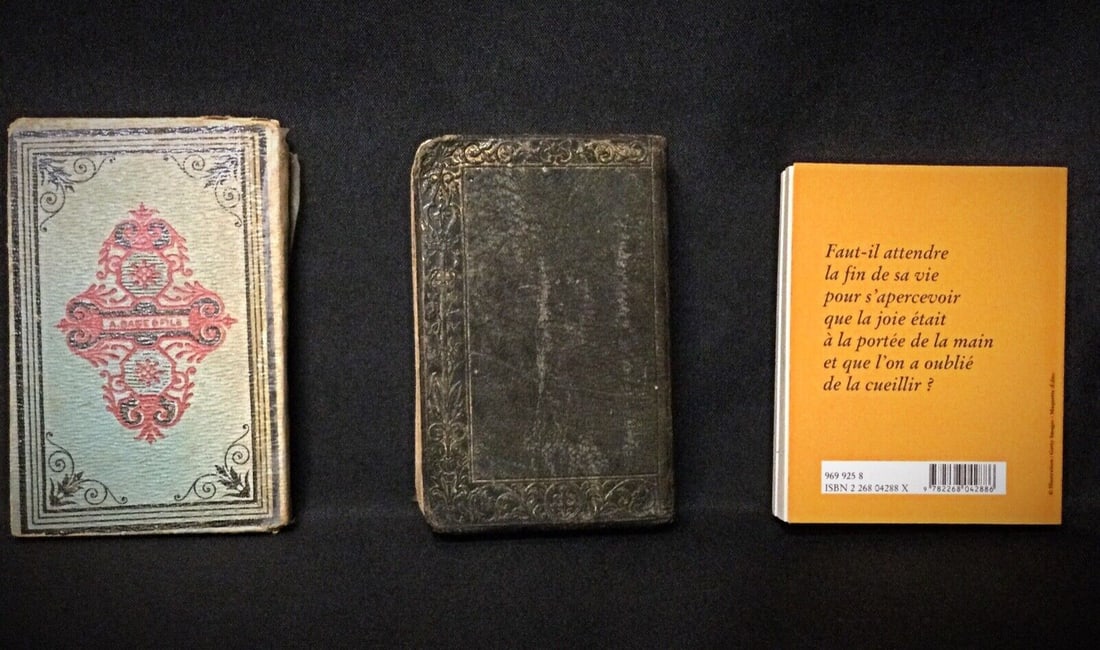 Faut-il attendre
la fin de sa vie
pour s'apercevoir
que la joie était
à la portée de la main
et que l'on a oublié
de la cueillir ?
969 925 8
ISBN 2 268 04288 X
9 782268 042886